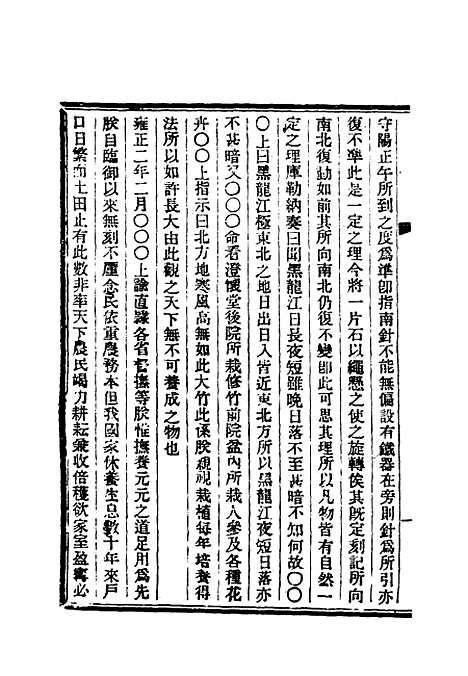 守陽正午所到之度爲準卽指南針不能無偏設有鐵器在旁則針爲所引亦
復不準此是一定之理今將一片石以繩懸之使之旋轉俟其旣定刻記所向
南北復動如前其所向南北仍復不變卽此可思其理所以凡物皆有自然一
定之理庫勒納奏曰聞黑龍江日長夜短雖晚日落不至甚暗不知何故〇〇
〇上曰黑龍江極東北之地日出日入皆近東北方所以黑龍江夜短日落亦
不甚暗又〇〇〇命看澄懷堂後院所栽修竹前院盆內所栽人參及各種花
卉〇〇上指示曰北方地寒風高無如此大竹此係朕親視栽植每年培養得
法所以如許長大由此觀之天下無不可養成之物也
雍正二年二月〇〇〇上諭直隸各省督撫等朕惟撫養元元之道足用爲先
朕自臨御以來無刻不廑念民依重農務本但我國家休養生息數十年來戶
口日繁而土田止有此數非率天下農民竭力耕耘兼收倍穫欲家室盈寧必